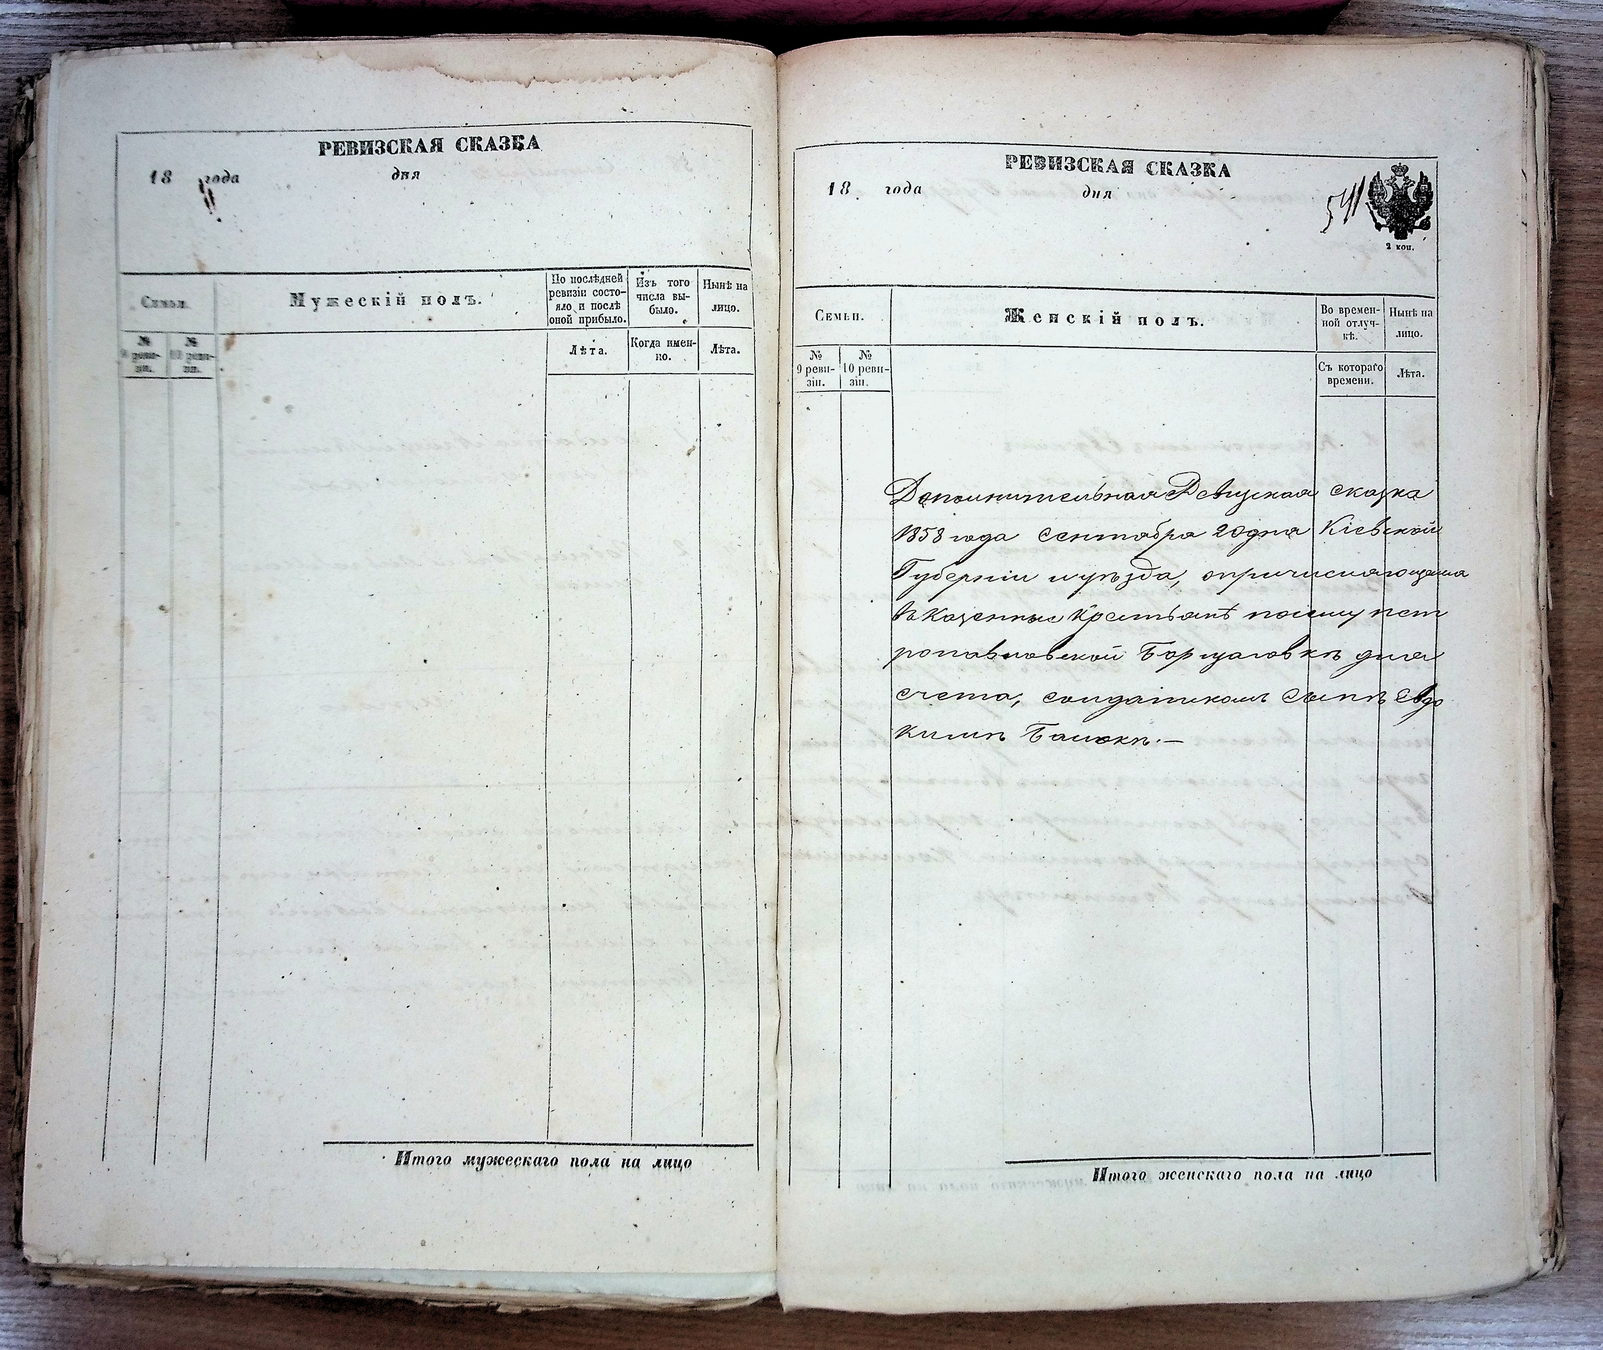 РЕВИЗСКАЯ СКАЗКА
18 года дня
Семьи.
Мужескій полъ.
По послѣдней
ревизіи состо-
яло и послѣ
оной прибыло.
Изъ того
числа вы-
было.
Нынѣ на
лицо.
№
9 реви-
зіи.
№
10 реви-
зіи.
Лѣта.
Когда имен-
но.
Лѣта.
Итого мужескаго пола на лицо
РЕВИЗСКАЯ СКАЗКА
18 года дня
541
2 коп.
Семьи.
Женскій полъ.
Во времен-
ной отлуч-
кѣ.
Нынѣ на
лицо.
№
9 реви-
зіи.
№
10 реви-
зіи.
Съ котораго
времени.
Лѣта.
Дополнительная Ревизская сказка
1858 года сентября 20 дня Кіевской
Губерніи и уѣзда, о причисляющемся
в казенные крестьяне по селу Пет
ропавловской Борщаговкѣ для
счета, солдатскомъ сынѣ Евдо
кимѣ
Итого женскаго пола на лицо